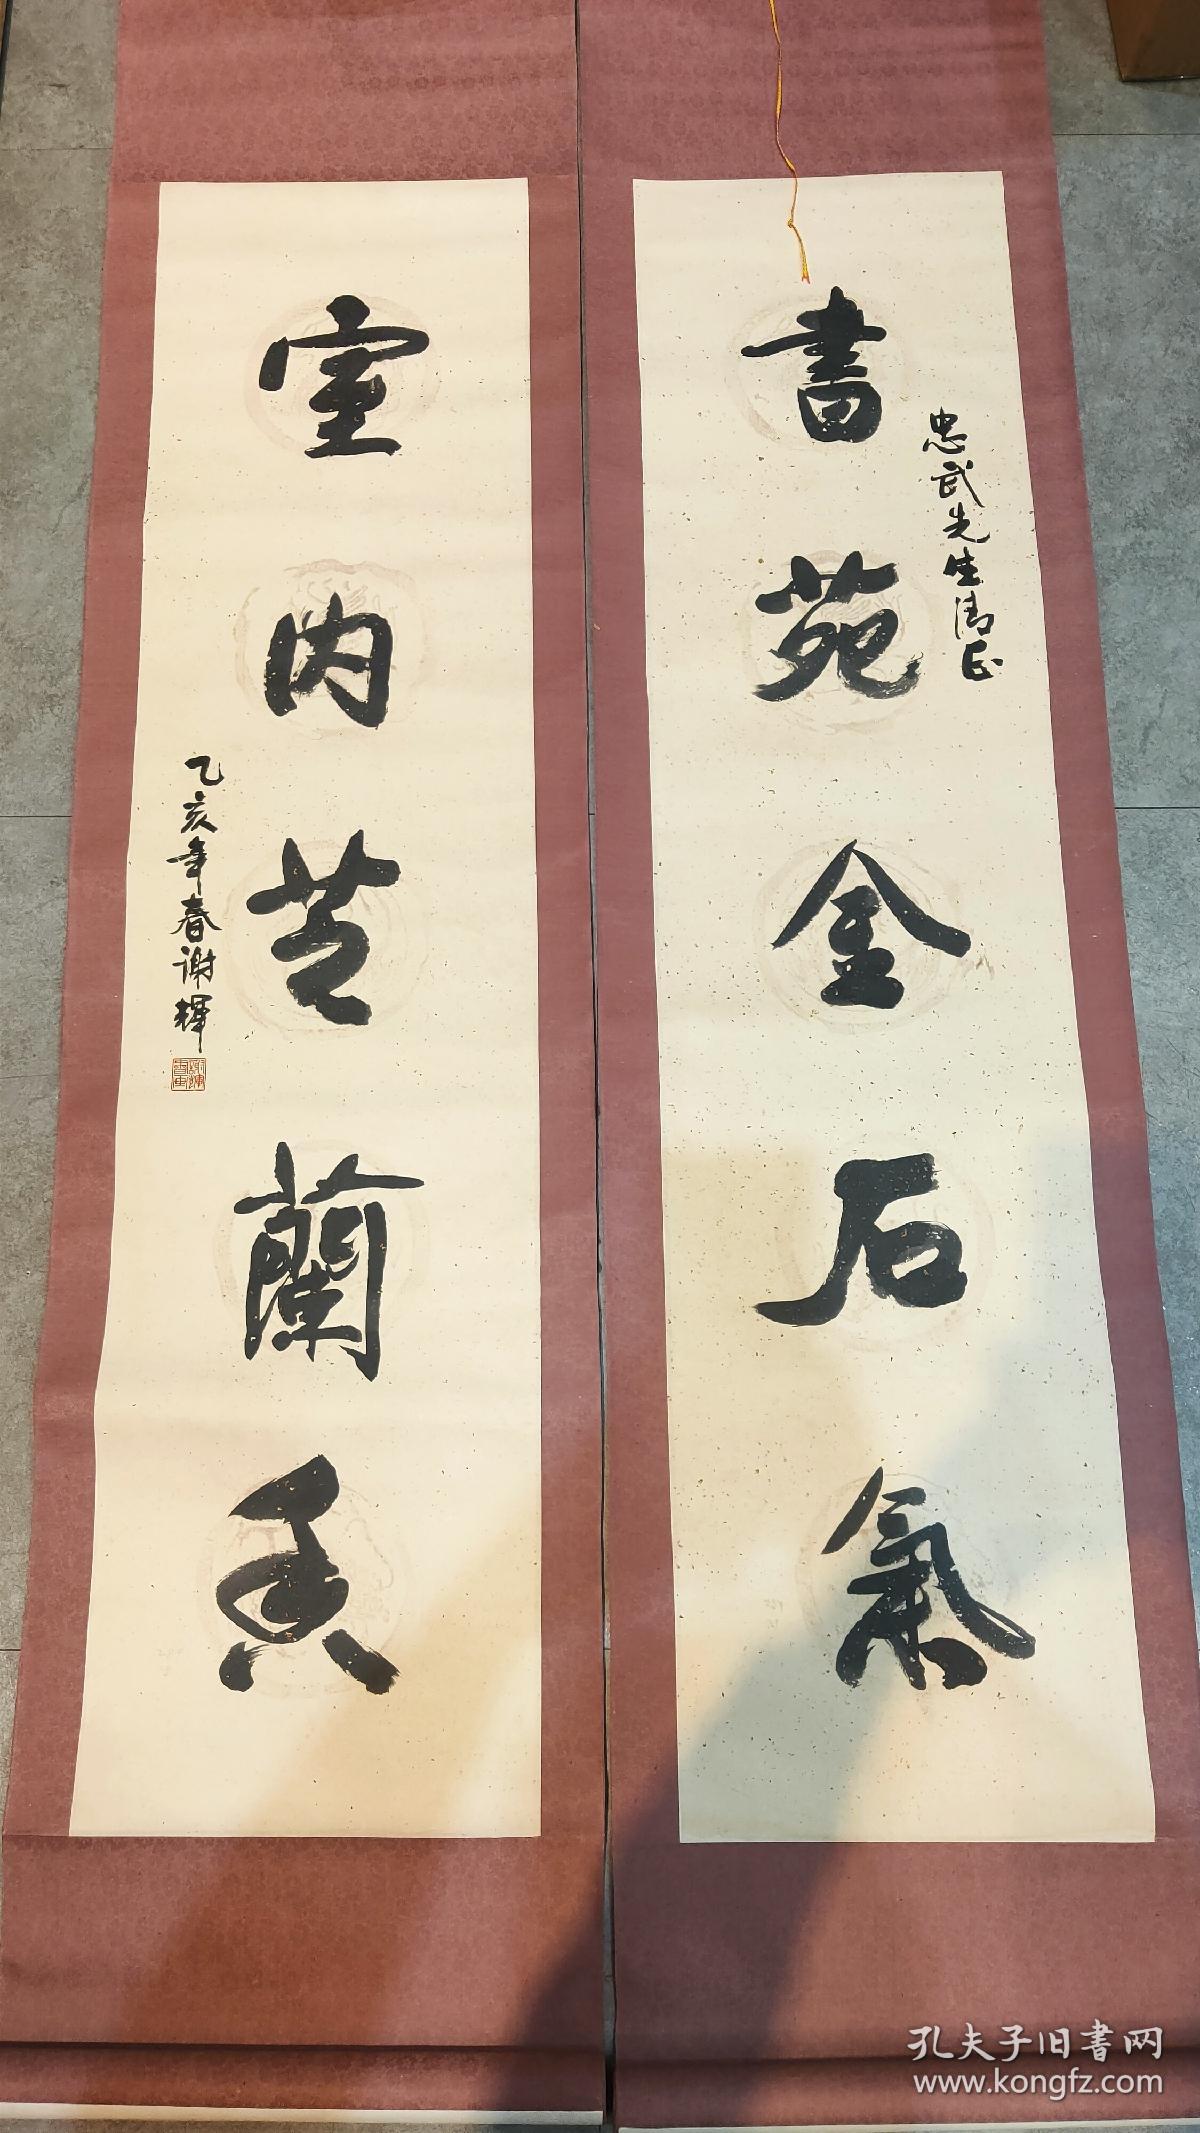 書苑金石氣
忠武先生清正
室内芝蘭香
乙亥年春谢輝
孔夫子旧書网
www.kongfz.com